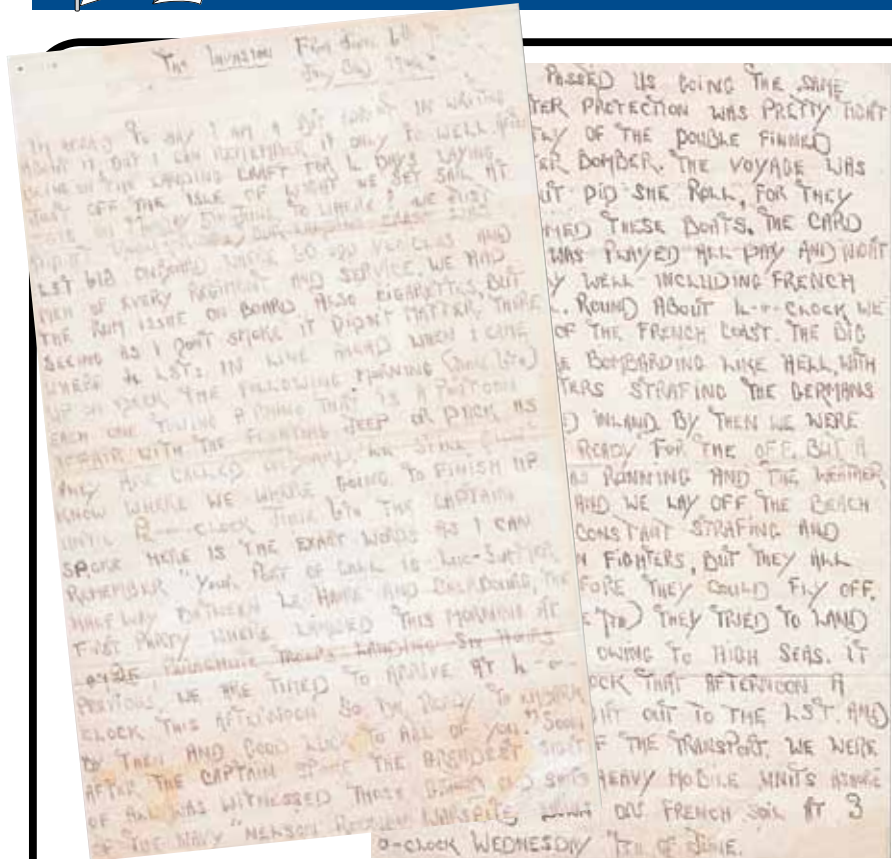 The Invasion From June 6th
July 3rd 1944
TO SAY I AM A BIT IN WRITING
ABOUT IT, BUT I CAN REMEMBER IT ONLY TO WELL, AFTER
BEING ON THE LANDING CRAFT FOR 4 DAYS LAYING
JUST OFF THE ISLE OF WIGHT WE SET SAIL AT
JUNE TO WHERE? WE JUST
DIDN'T
LST ONBOARD WHERE VEHICLES AND
MEN OF EVERY REGIMENT AND SERVICE. WE HAD
THE RUM ISSUE ON BOARD ALSO CIGARETTES, BUT
SEEING AS I DON'T SMOKE IT DIDN'T MATTER, THERE
WHERE LSTS. IN LINE AHEAD WHEN I CAME
UP ON DECK THE FOLLOWING MORNING (June 6th)
EACH ONE TOWING A RHINO THAT IS A PONTOON
AFFAIR WITH THE FLOATING JEEP OR DUCK AS
THEY ARE CALLED WE STILL
KNOW WHERE WE WHERE GOING TO FINISH UP
UNTIL CLOCK JUNE 6th THE CAPTAIN
SPOKE HERE IS THE EXACT WORDS AS I CAN
REMEMBER "YOUR PORT OF CALL IS
HALF WAY BETWEEN LE HAVRE AND CHERBOURG, THE
FIRST PARTY WHERE LANDED THIS MORNING AT
PARACHUTE TROOPS LANDING SIX HOURS
PREVIOUS, WE ARE TIMED TO ARRIVE AT 4-o-
CLOCK THIS AFTERNOON SO BE READY TO
BY THEN AND GOOD LUCK TO ALL OF YOU." SOON
AFTER THE CAPTAIN SPOKE THE GRANDEST SIGHT
OF ALL WAS WITNESSED THOSE SHIPS
OF THE NAVY "NELSON RODNEY WARSPITE
PASSED US GOING THE SAME
TER PRETECTION WAS PRETTY TIGHT
OF THE DOUBLE FINNED
ER BOMBER. THE VOYAGE WAS
UT DID SHE ROLL, FOR THEY
MED THESE BOATS. THE CARD
WAS PLAYED ALL DAY AND NIGHT
Y WELL INCLUDING FRENCH
. ROUND ABOUT 4-o-CLOCK WE
OF THE FRENCH COAST. THE BIG
E BOMBARDING LIKE HELL, WITH
TERS STRAFING THE GERMANS
D INLAND. BY THEN WE WERE
READY FOR THE OFF. BUT A
AS RUNNING AND THE WEATHER
AND WE LAY OFF THE BEACH
CONSTANT STRAFING AND
N FIGHTERS, BUT THEY ALL
FORE THEY COULD FLY OFF.
E 7TH) THEY TRIED TO LAND
OWING TO HIGH SEAS. IT
OCK THAT AFTERNOON A
OUT TO THE LST. AND
F THE TRANSPORT. WE WERE
HEAVY MOBILE UNITS ASHORE
ON FRENCH SOIL AT 3
o-CLOCK WEDNESDAY 7TH OF JUNE.